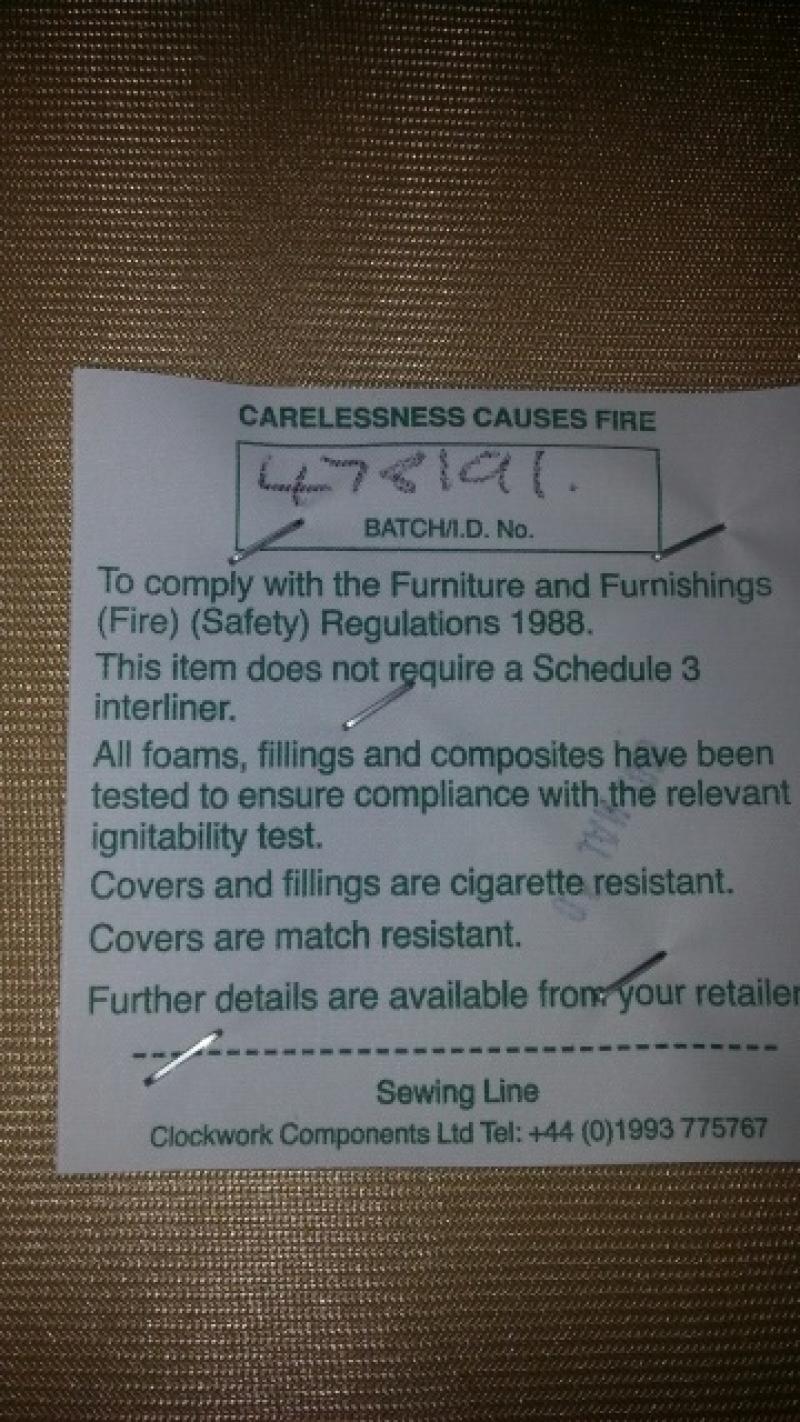 CARELESSNESS CAUSES FIRE
478191.
BATCH/I.D. No.
To comply with the Furniture and Furnishings
(Fire) (Safety) Regulations 1988.
This item does not require a Schedule 3
interliner.
All foams, fillings and composites have been
tested to ensure compliance with the relevant
ignitability test.
Covers and fillings are cigarette resistant.
Covers are match resistant.
Further details are available from your retailer
Sewing Line
Clockwork Components Ltd Tel: +44 (0)1993 775767